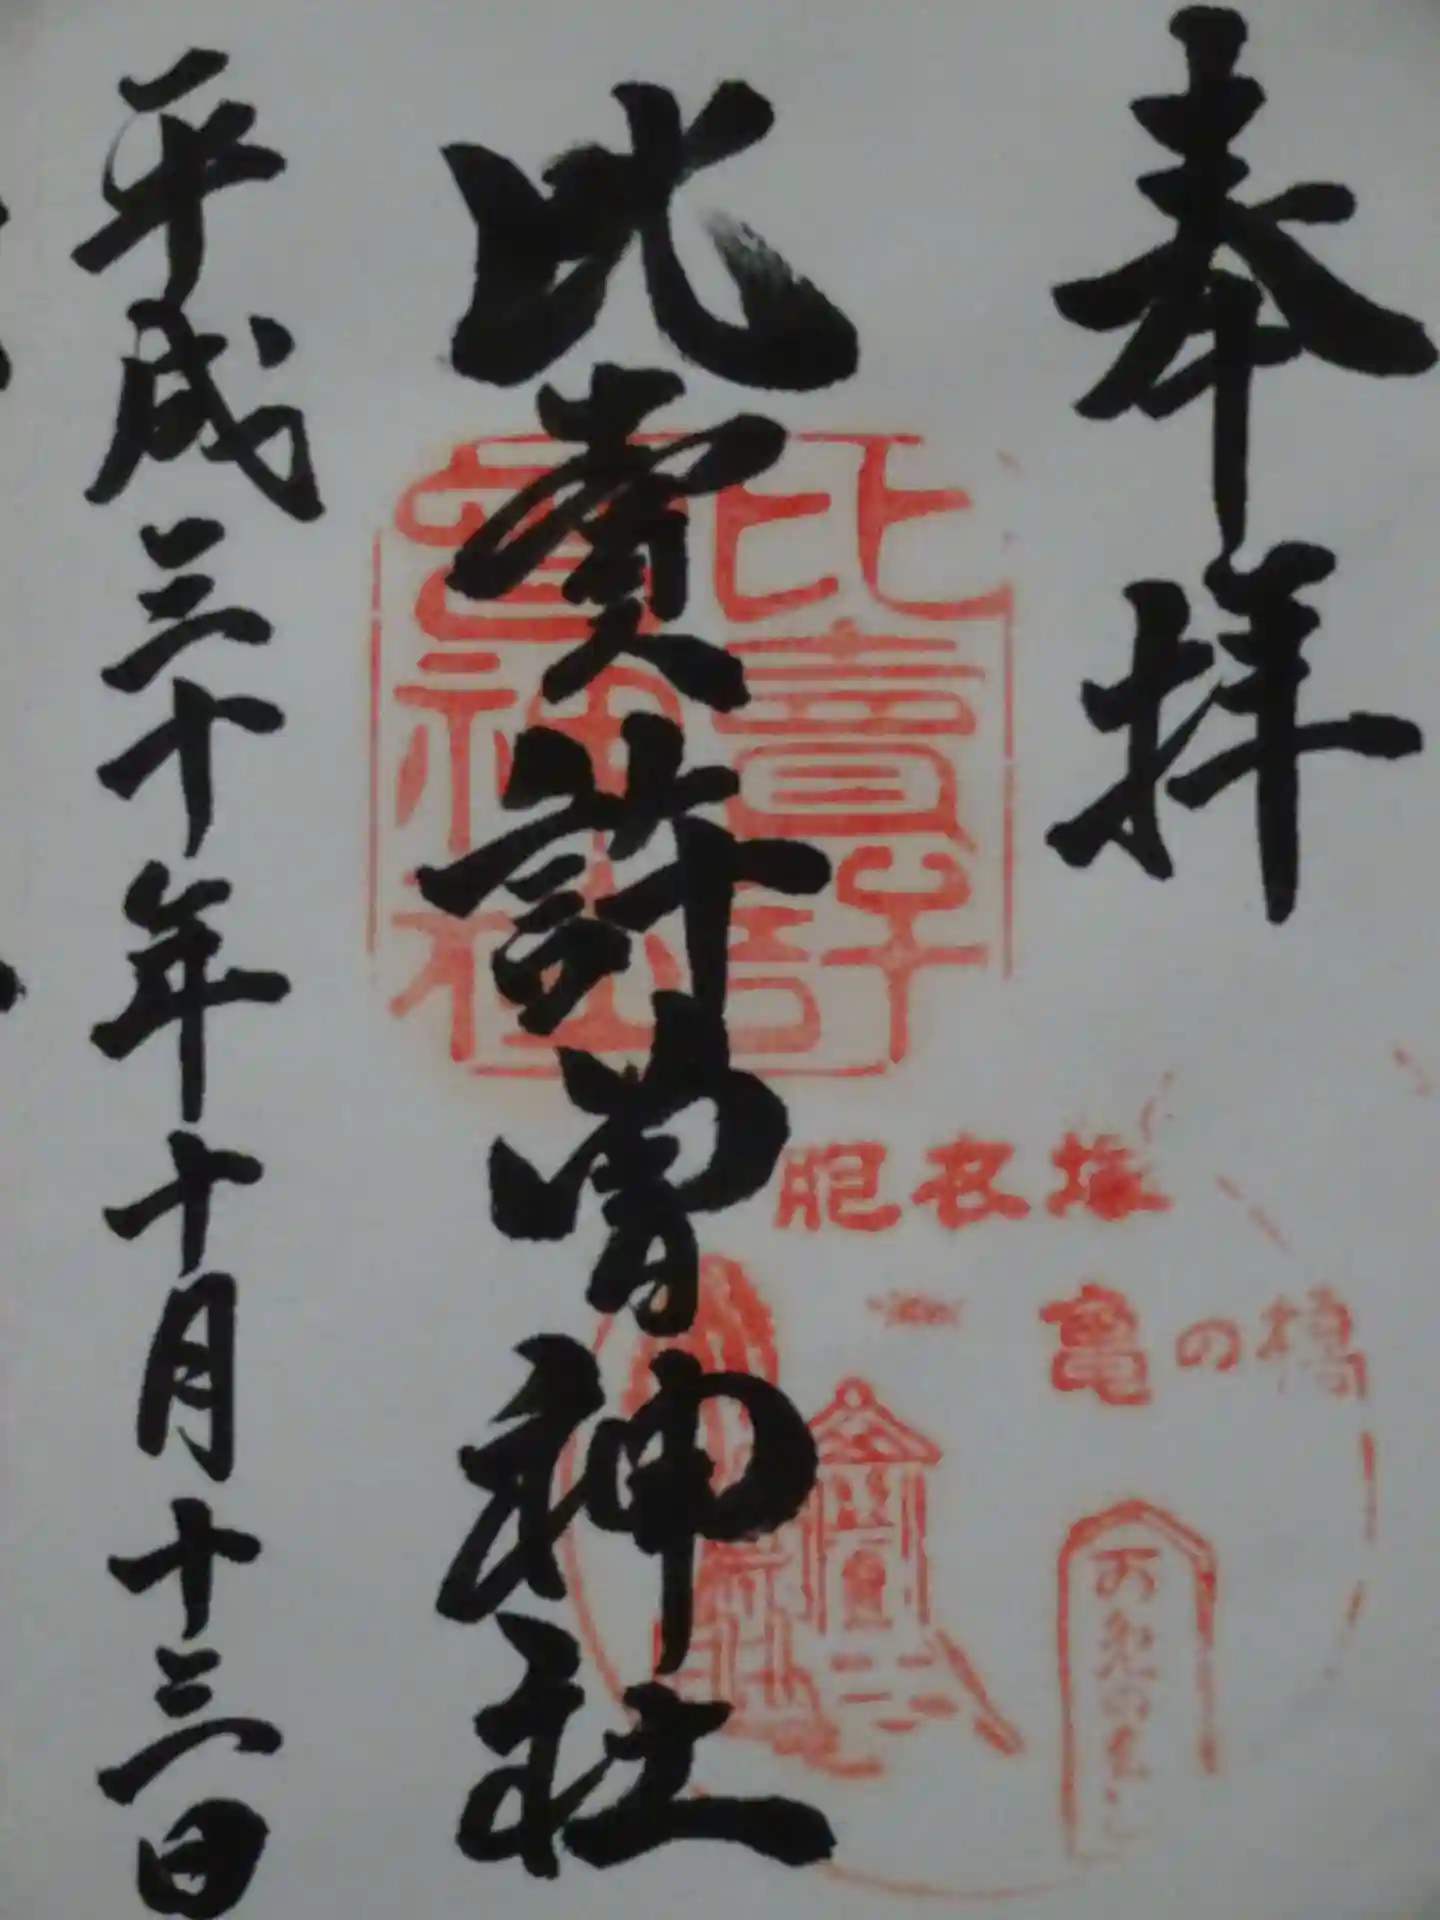 奉拝
比賣許曽神社
平成三十年十月十三日
比賣許
曽神社
胞衣塚
亀の橋